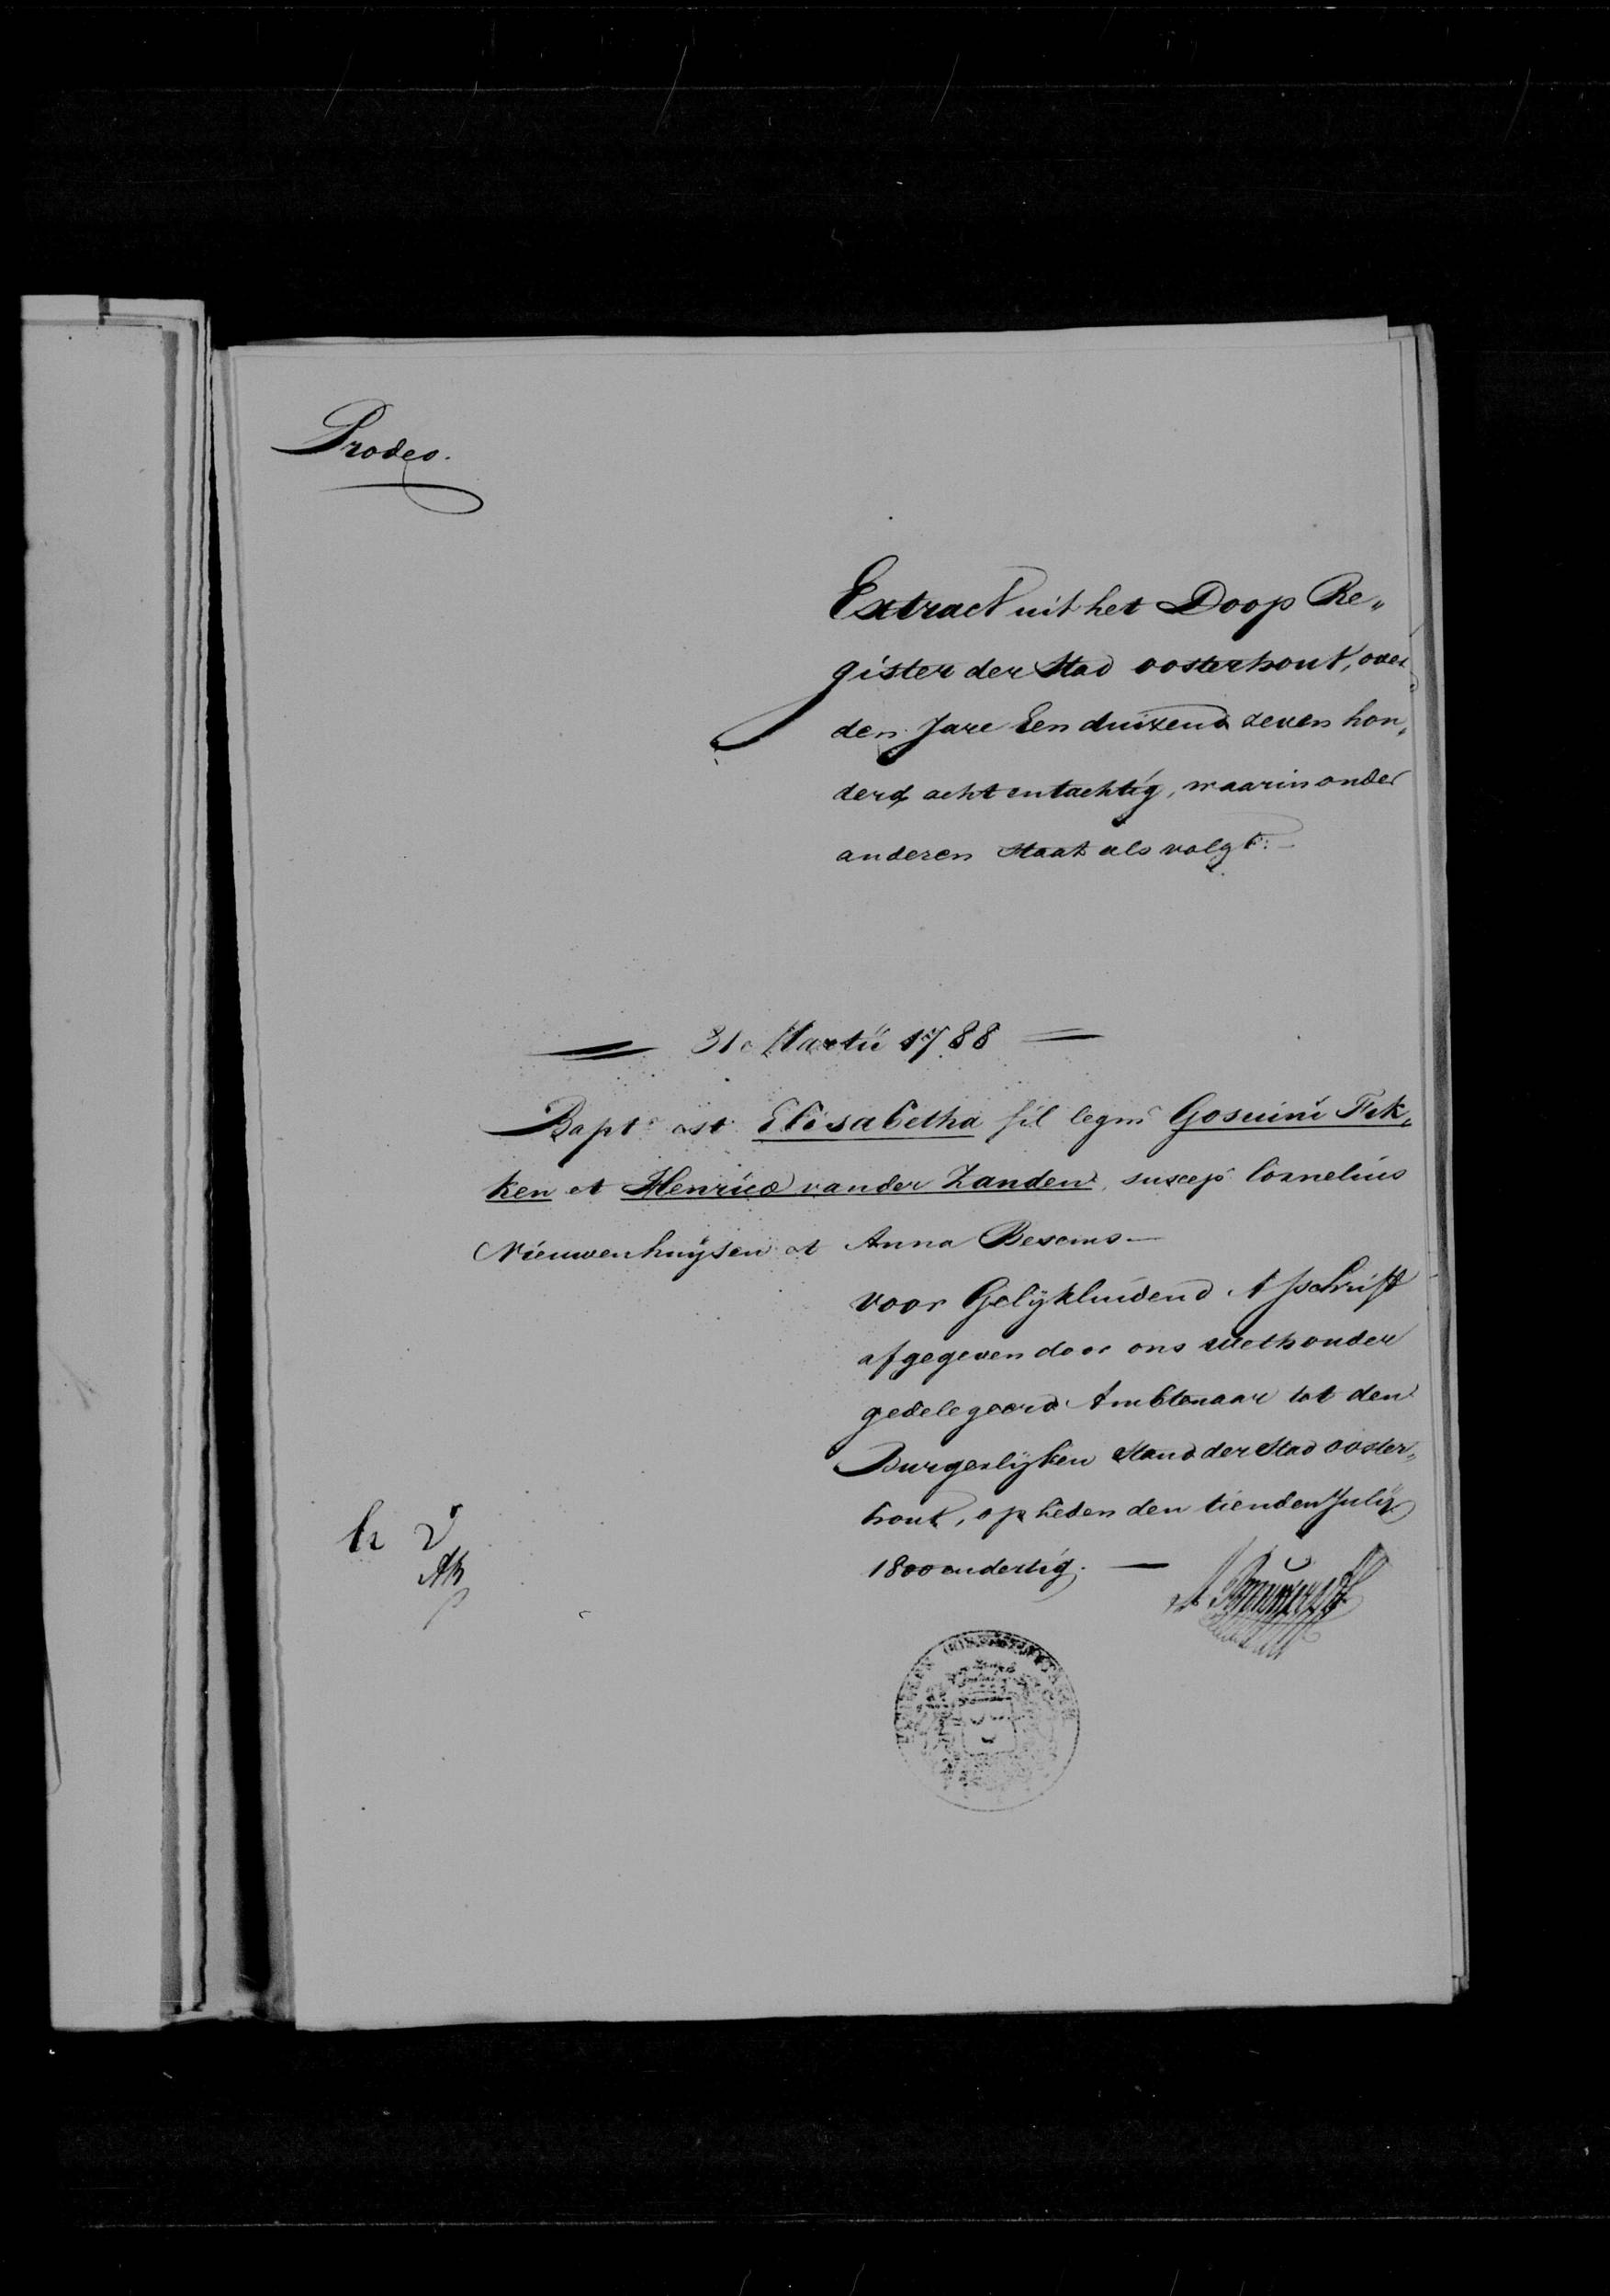 Prodeo.
Extract uit het Doop Re„
gister der Stad oosterhout, over
den Jare Een duizend zeven hon„
derd acht en tachtig, waarin onder
anderen Staat als volgt:
31e Martii 1788
Bapt. est Elisabetha fil legm Gosuini Fik„
ken et Henrica vander Zanden, suscep Cornelius
Nieuwenhuÿsen et Anna Besems
voor Gelÿkluidend Afschrift
afgegeven door ons Wethouder
gedelegeerd Ambtenaar tot den
Burgerlÿken Stand der Stad ooster„
hout, op heden den tienden Julÿ
1800 en dertig.